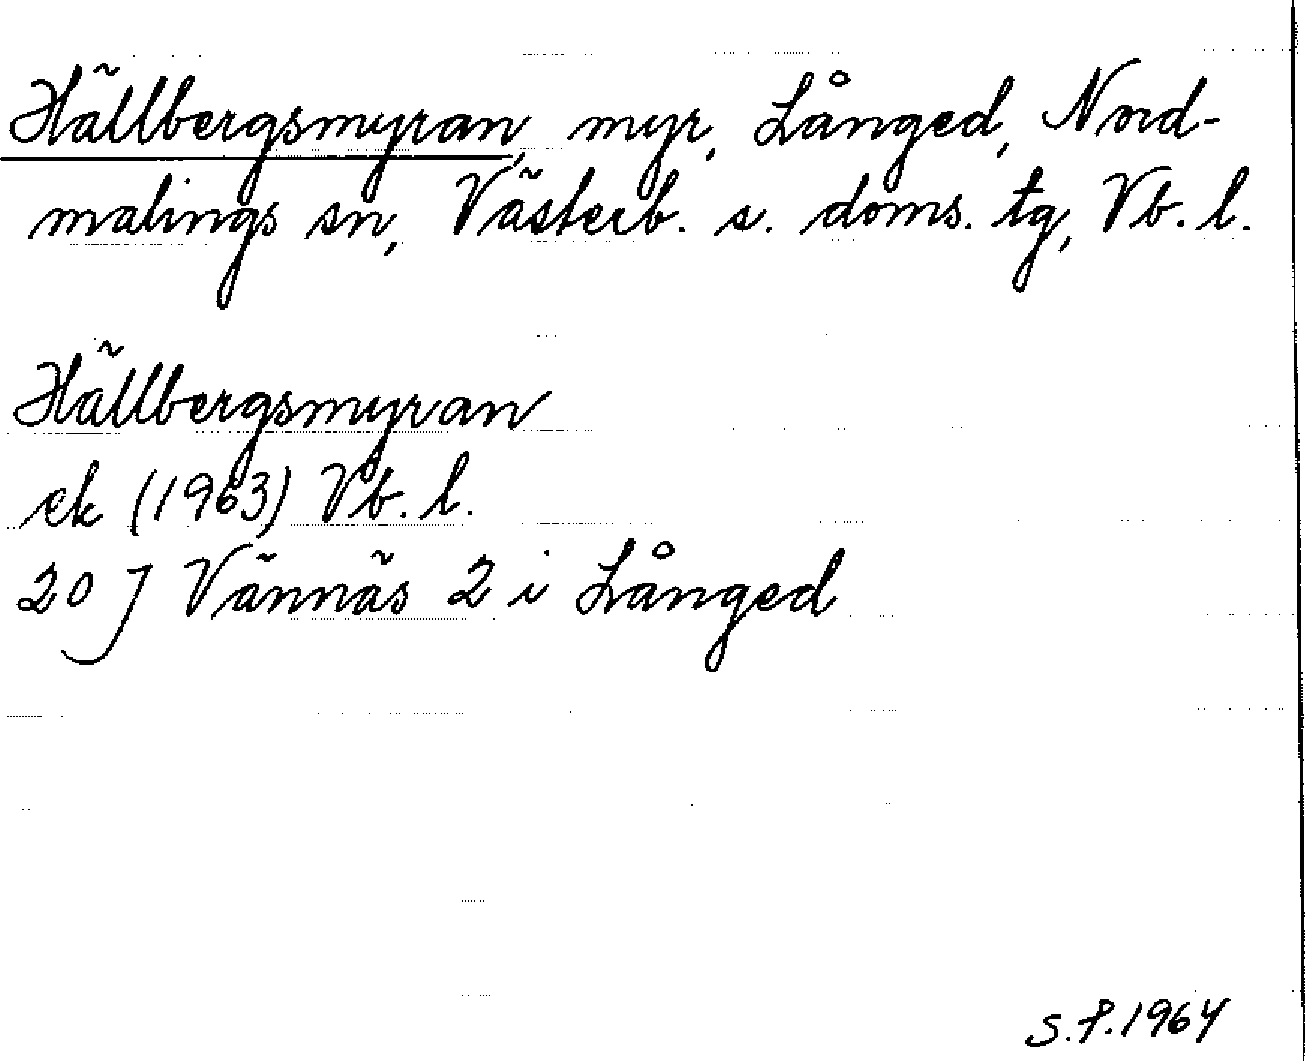 Hällbergsmyran, myr, Långed, Nord-
malings sn, Västerb. s. doms. tg, Vb. l.
Hällbergsmyran
ek (1963) Vb. l.
20 J Vännäs 2 i Långed
S.P. 1964